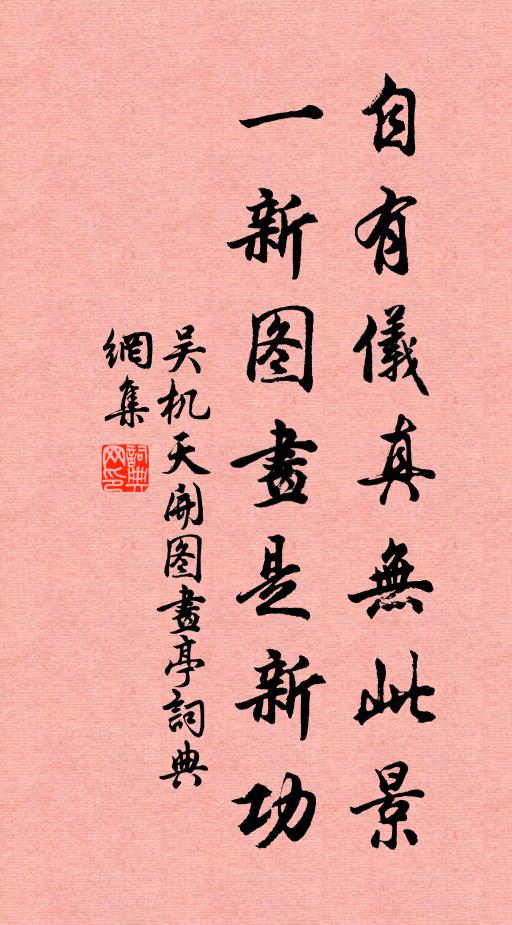 自有儀真無此景
一新图畫是新功
吴机天開图畫亭詞典
網集
詞典
网印